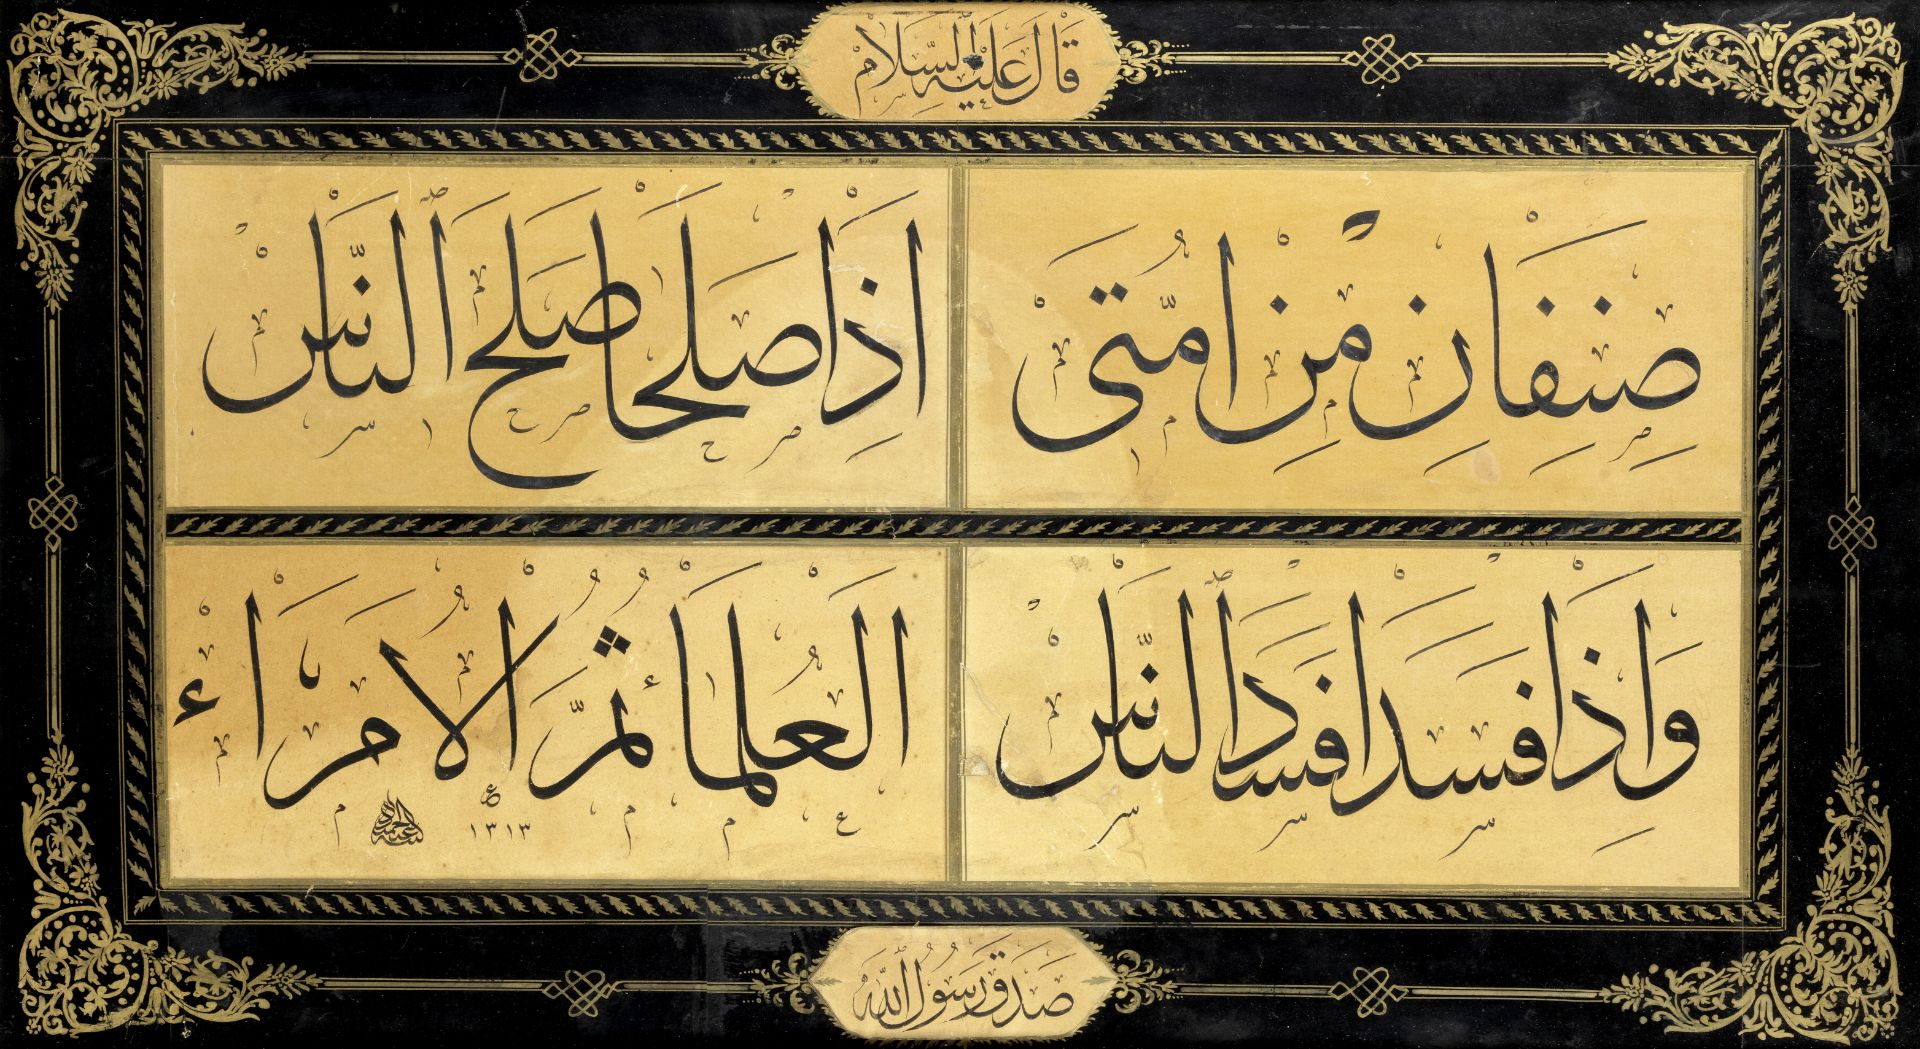 قَالَ عَلَيْهِ السَّلَام
صِنْفَانِ مِنْ اُمَّتى
اِذَا صَلَحَا صَلَحَ النَّاسْ
وَاِذَا فَسَدَا فَسَدَ النَّاسْ
اَلْعُلَمَاءُ ثُمَّ الْاُمَرَاءْ
١٣١٣
صَدَقَ رَسُولُ اللّٰه